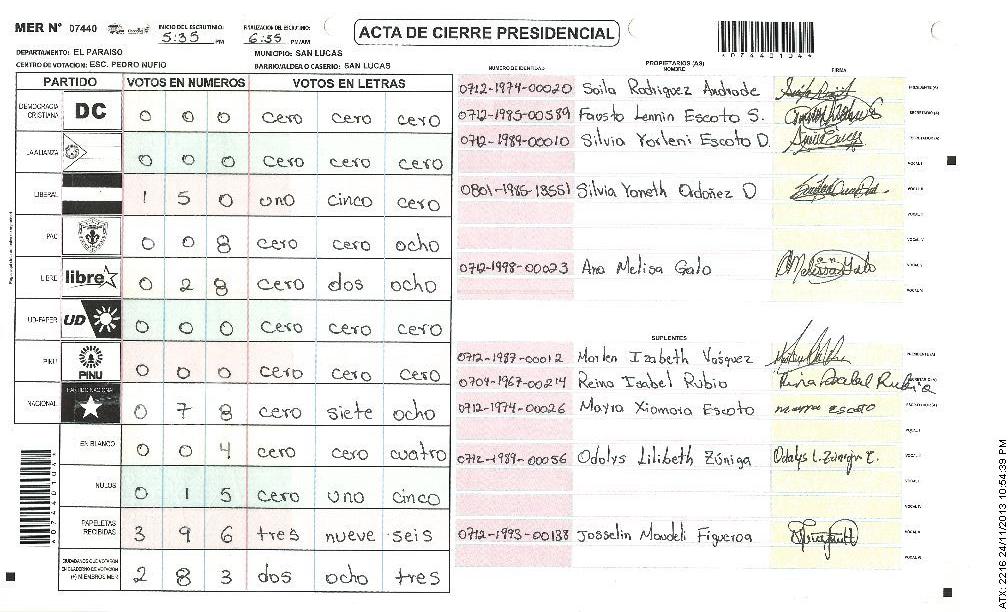 MER Nº 07440
INICIO DEL ESCRUTINIO: 5:35 PM
FINALIZACION DEL ESCRUTINIO: 6:55 PM/AM
ACTA DE CIERRE PRESIDENCIAL
A074401044
DEPARTAMENTO: EL PARAISO
MUNICIPIO: SAN LUCAS
CENTRO DE VOTACION: ESC. PEDRO NUFIO
BARRIO/ALDEA O CASERIO: SAN LUCAS
PARTIDO VOTOS EN NUMEROS VOTOS EN LETRAS
DEMOCRACIA CRISTIANA DC 0 0 0 cero cero cero
LA ALIANZA 0 0 0 cero cero cero
LIBERAL 1 5 0 uno cinco cero
PAC 0 0 8 cero cero ocho
LIBRE libre 0 2 8 cero dos ocho
UD-FAPER UD 0 0 0 cero cero cero
PINU PINU 0 0 0 cero cero cero
NACIONAL PARTIDO NACIONAL 0 7 8 cero siete ocho
EN BLANCO 0 0 4 cero cero cuatro
NULOS 0 1 5 cero uno cinco
PAPELETAS RECIBIDAS 3 9 6 tres nueve seis
CIUDADANOS QUE VOTARON EN CUADERNO DE VOTACION (+) MIEMBROS MER 2 8 3 dos ocho tres
NUMERO DE IDENTIDAD PROPIETARIOS (AS) NOMBRE FIRMA
0712-1974-00020 Soila Rodriguez Andrade PRESIDENTE (A)
0712-1985-00589 Fausto Lennin Escoto S. SECRETARIO (A)
0712-1989-00010 Silvia Yorleni Escoto D. ESCRUTADOR (A)
VOCAL I
0801-1985-18551 Silvia Yaneth Ordoñez D VOCAL II
VOCAL III
VOCAL IV
0712-1998-00023 Ana Melisa Galo VOCAL V
VOCAL VI
SUPLENTES
0712-1987-00012 Marlen Izabeth Vasquez PRESIDENTE (A)
0704-1967-00214 Reina Isabel Rubio Reina Isabel Rubio
0712-1974-00026 Mayra Xiomara Escoto mayra escoto ESCRUTADOR (A)
VOCAL I
0712-1989-00056 Odalys Lilibeth Zúniga Odalys L. Zúniga E. VOCAL II
VOCAL III
VOCAL IV
0712-1993-00138 Josselin Maudeli Figueroa VOCAL V
VOCAL VI
A074401044
ATX: 2216 24/11/2013 10:54:39 PM